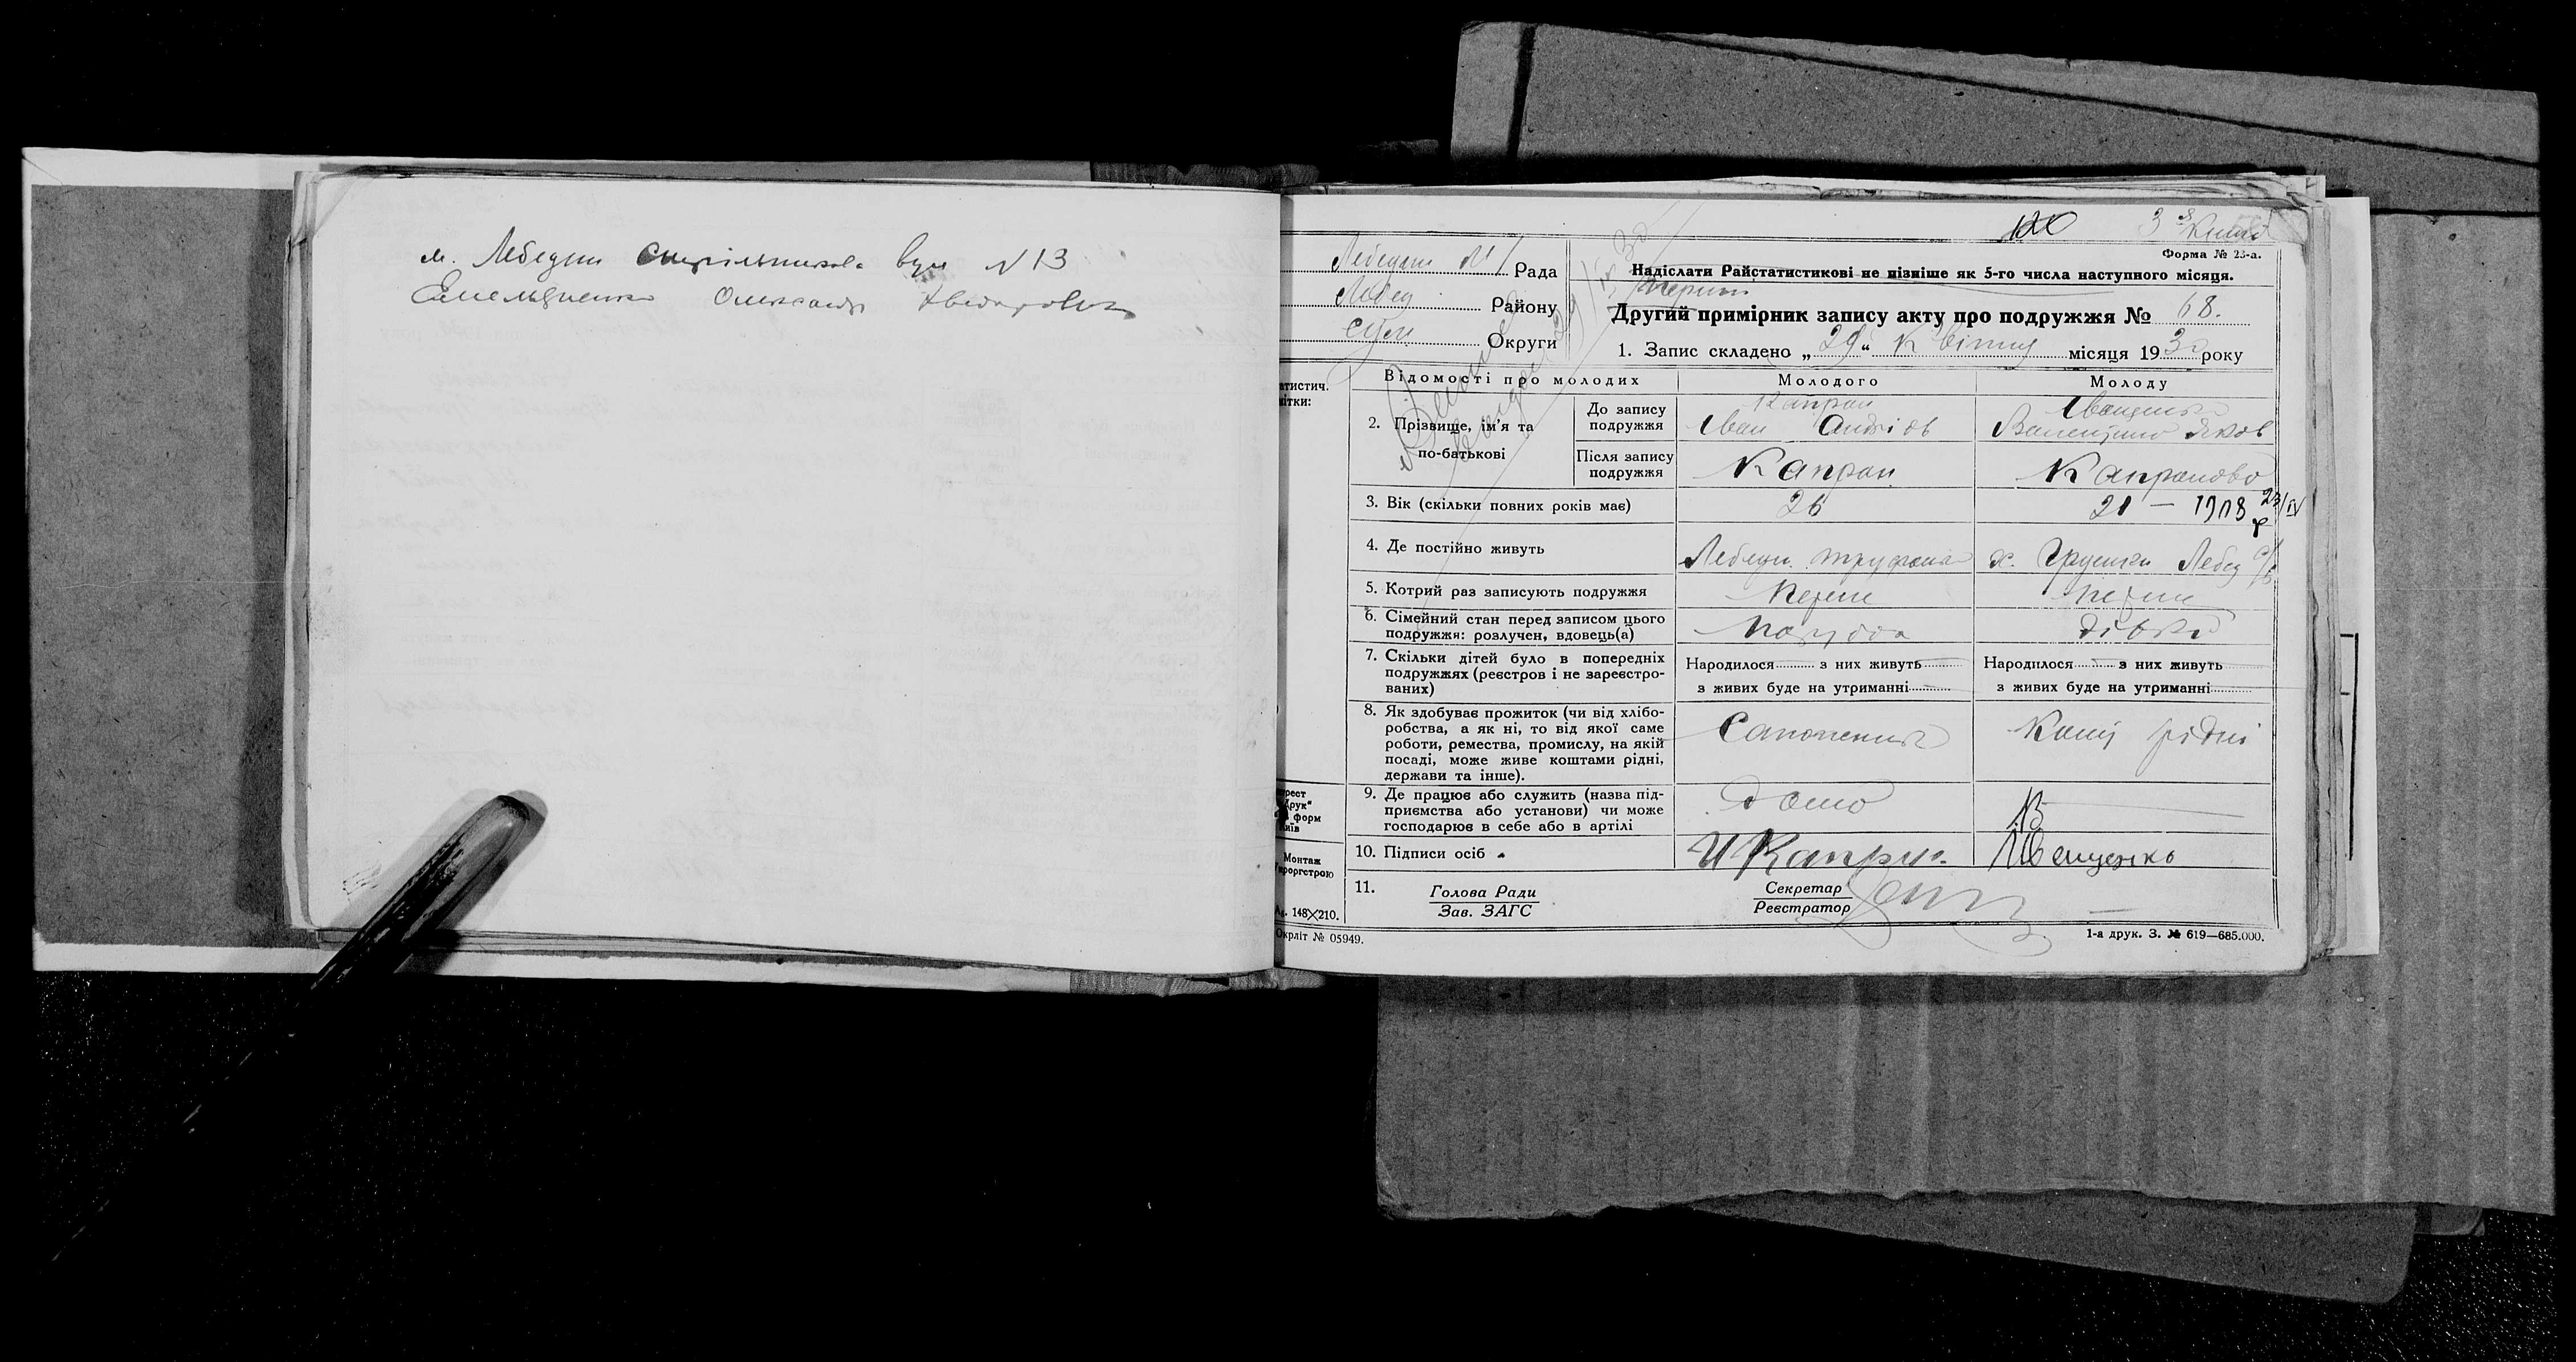 м. Лебедин вул N 13
Олександр
120 3
Форма № 25-а.
Лебедин N 1 Рада
Надіслати Райстатистикові не пізніше як 5-го числа наступного місяця.
Лебед Району
перший
Другий примірник запису акту про подружжя № 68.
Сум Округи
1. Запис складено „29“ Квітня місяця 1930 року
атистич.
мітки:
Відомості про молодих Молодого Молоду
2. Прізвище, ім'я та по-батькові
До запису подружжя
Капран
Іван Андріов
Іващенко
Валентина Яков
Після запису подружжя
Капран
Капранова
3. Вік (скільки повних років має) 26 21 — 1908 23/IV
4. Де постійно живуть Лебедин х. Лебед с/р
5. Котрий раз записують подружжя Перше перше
6. Сімейний стан перед записом цього
подружжя: розлучен, вдовець(а) парубок дівка
7. Скільки дітей було в попередніх
подружжях (реєстров і не зареєстро-
ваних)
Народилося з них живуть
з живих буде на утриманні
Народилося з них живуть
з живих буде на утриманні
8. Як здобуває прожиток (чи від хлібо-
робства, а як ні, то від якої саме
роботи, ремества, промислу, на якій
посаді, може живе коштами рідні,
держави та інше).
рідні
9. Де працює або служить (назва під-
приємства або установи) чи може
господарює в себе або в артілі
дома
10. Підписи осіб И Капран Иващенко
11. Голова Ради
Зав. ЗАГС
Секретар
Реєстратор
рест
Друк“
форм
Київ
Монтаж
148×210.
Окрліт № 05949.
1-а друк. З. № 619—685.000.